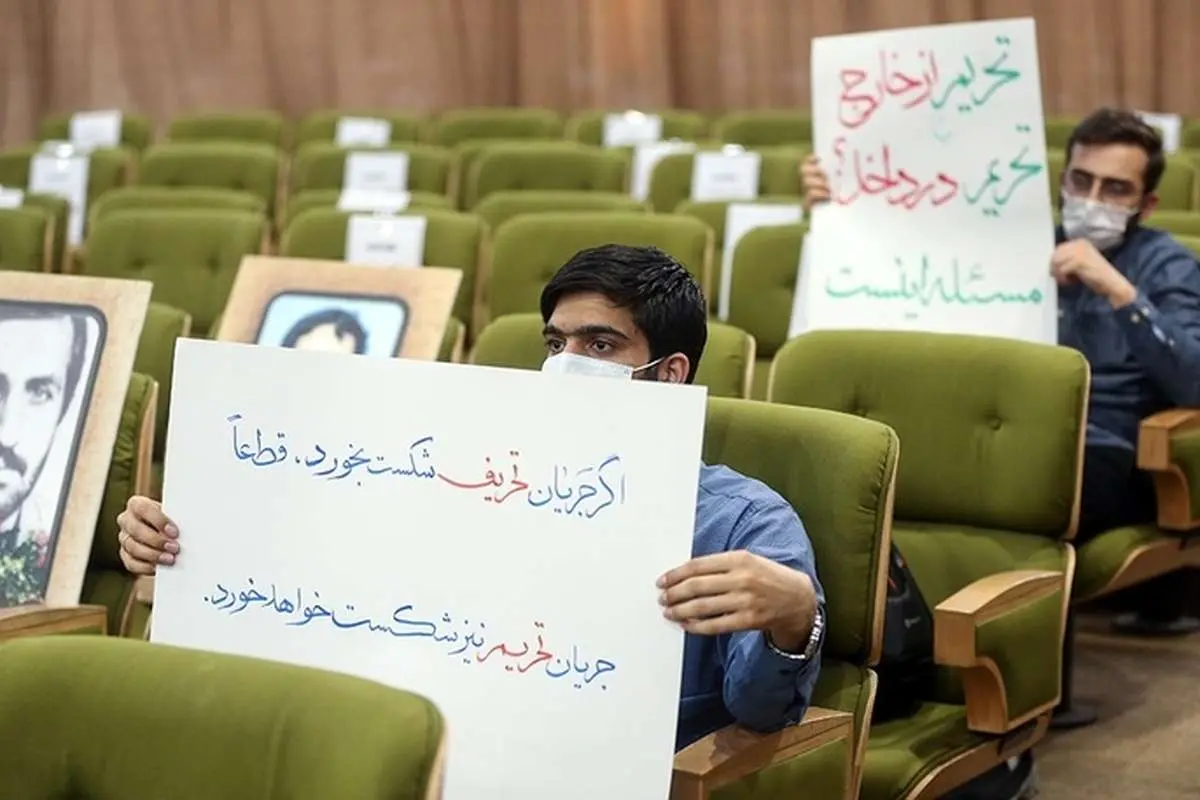 تحریم از خارج
تحریم در داخل؟
مسئله اینست
اگر جریان تحریف شکست بخورد، قطعاً
جریان تحریم نیز شکست خواهد خورد.